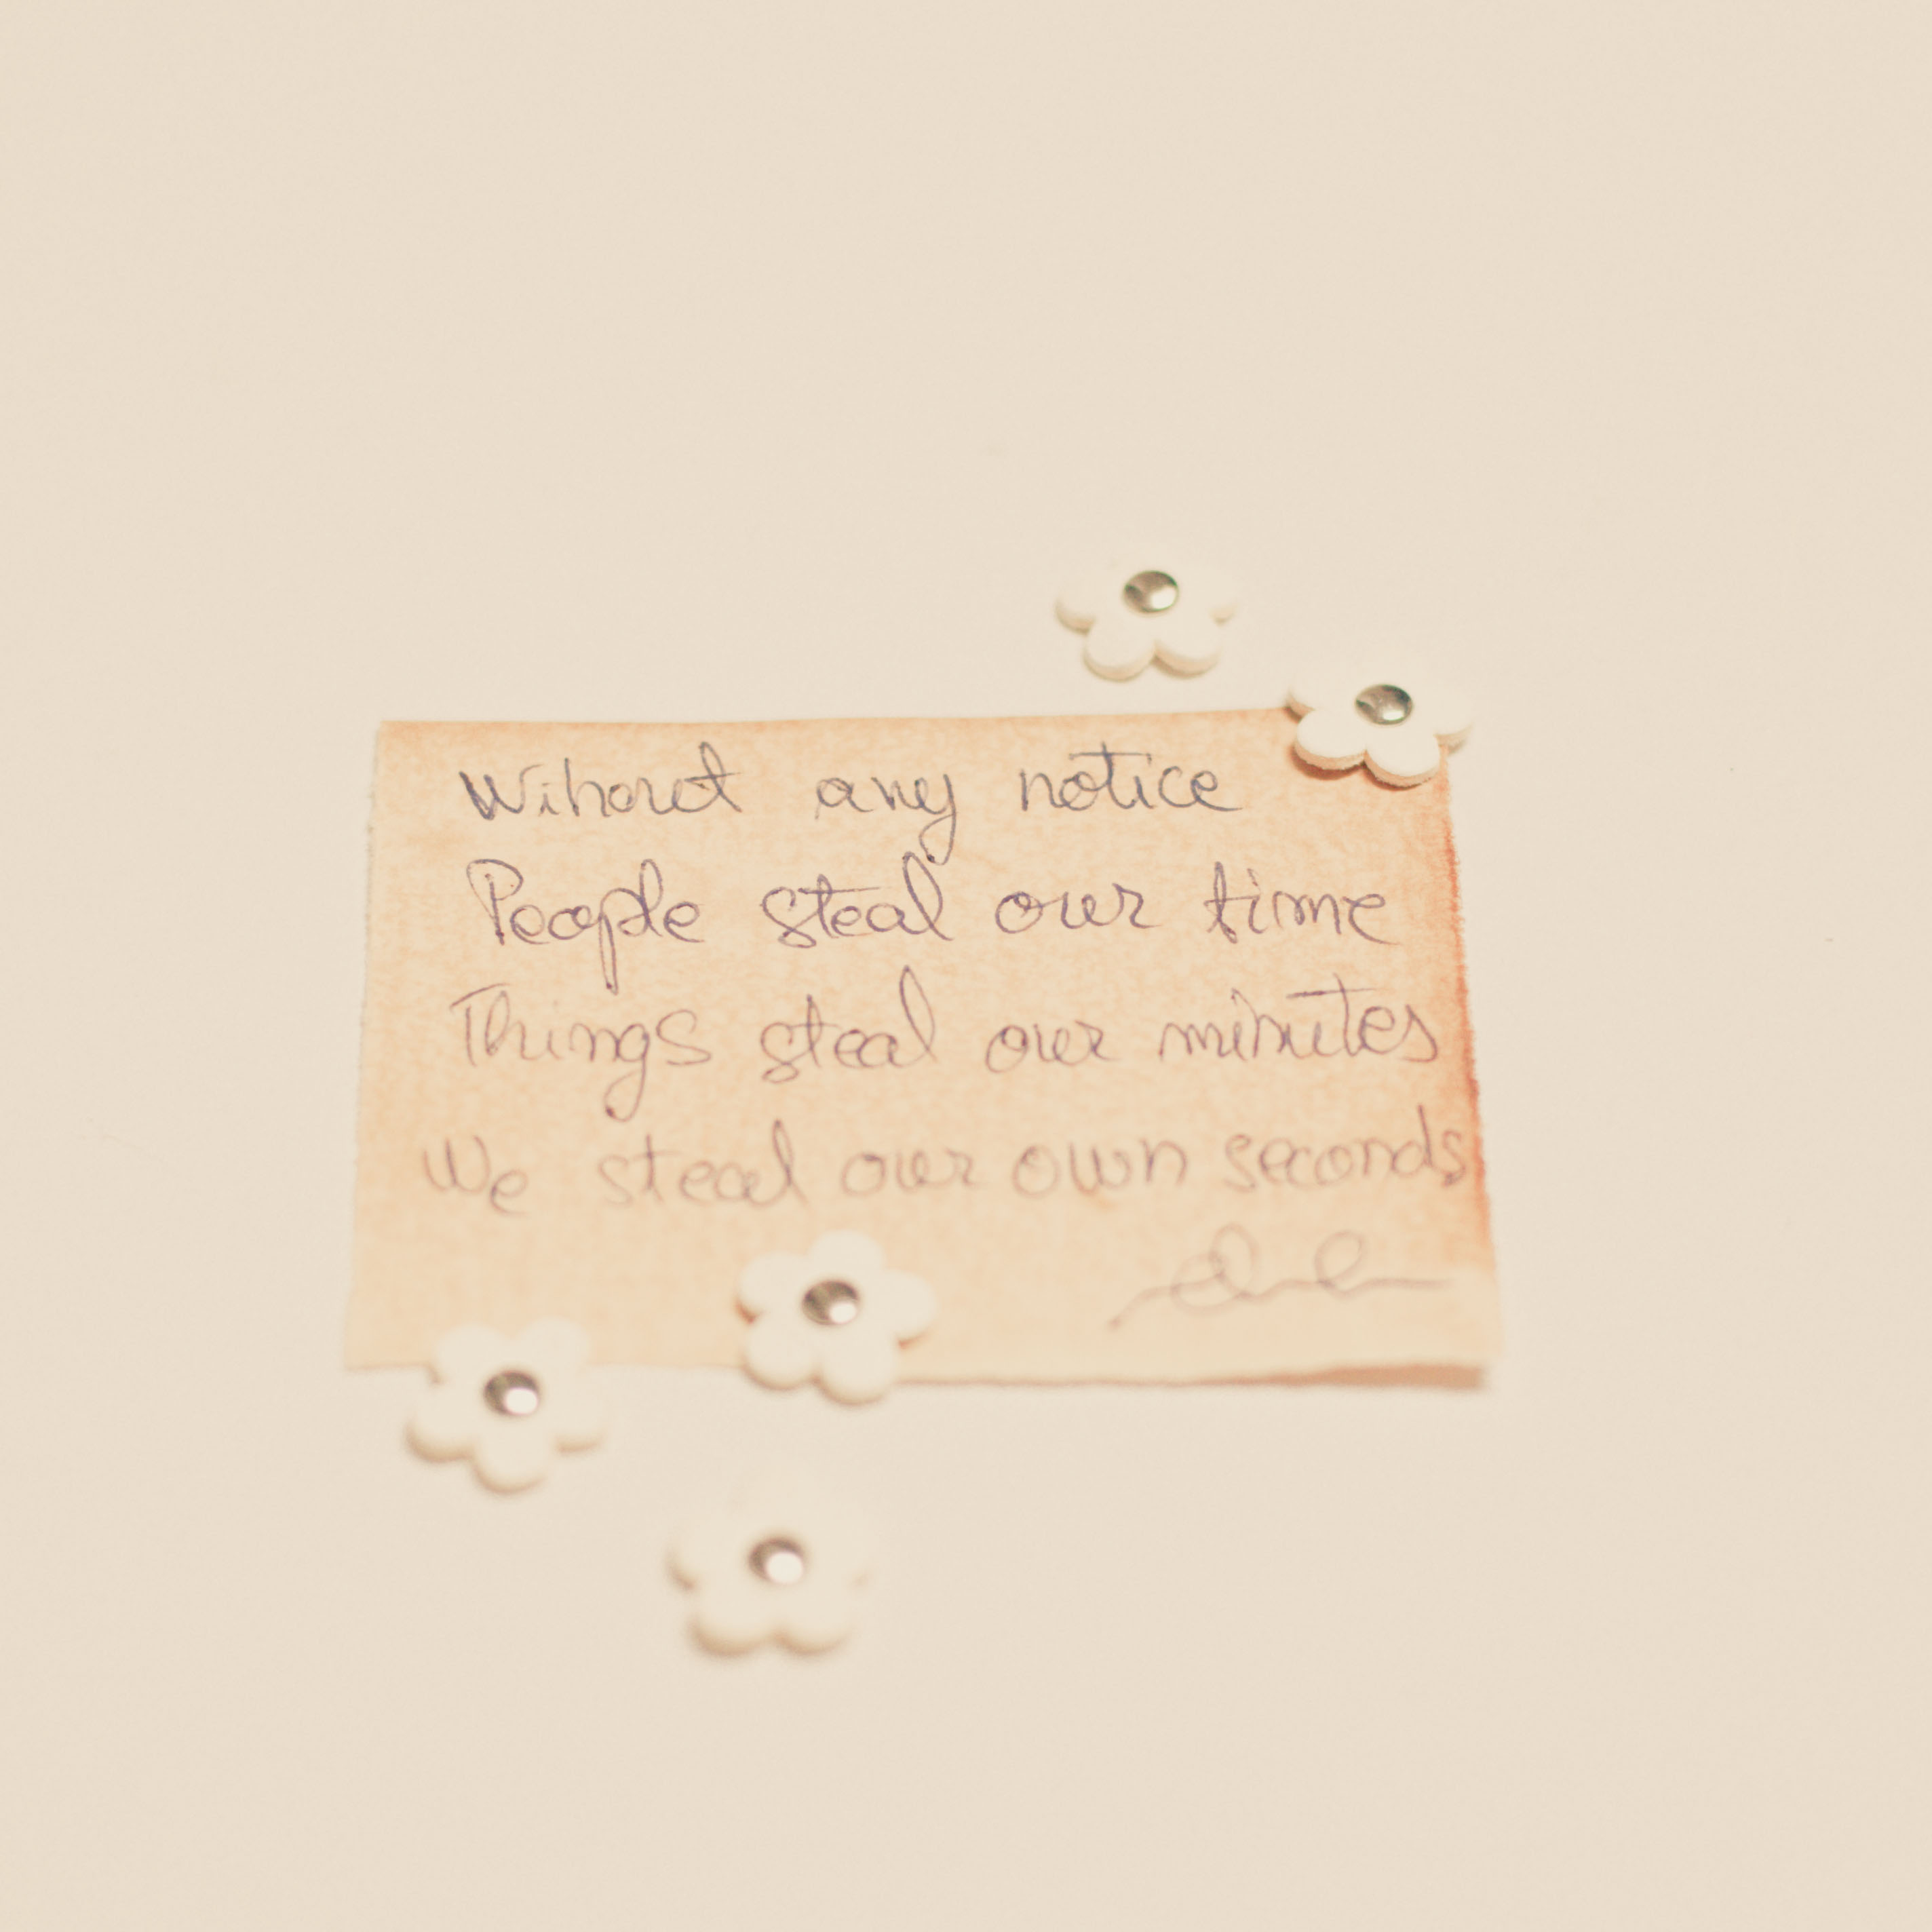 Wihout any notice
People steal our time
Things steal our minutes
We steal our own seconds